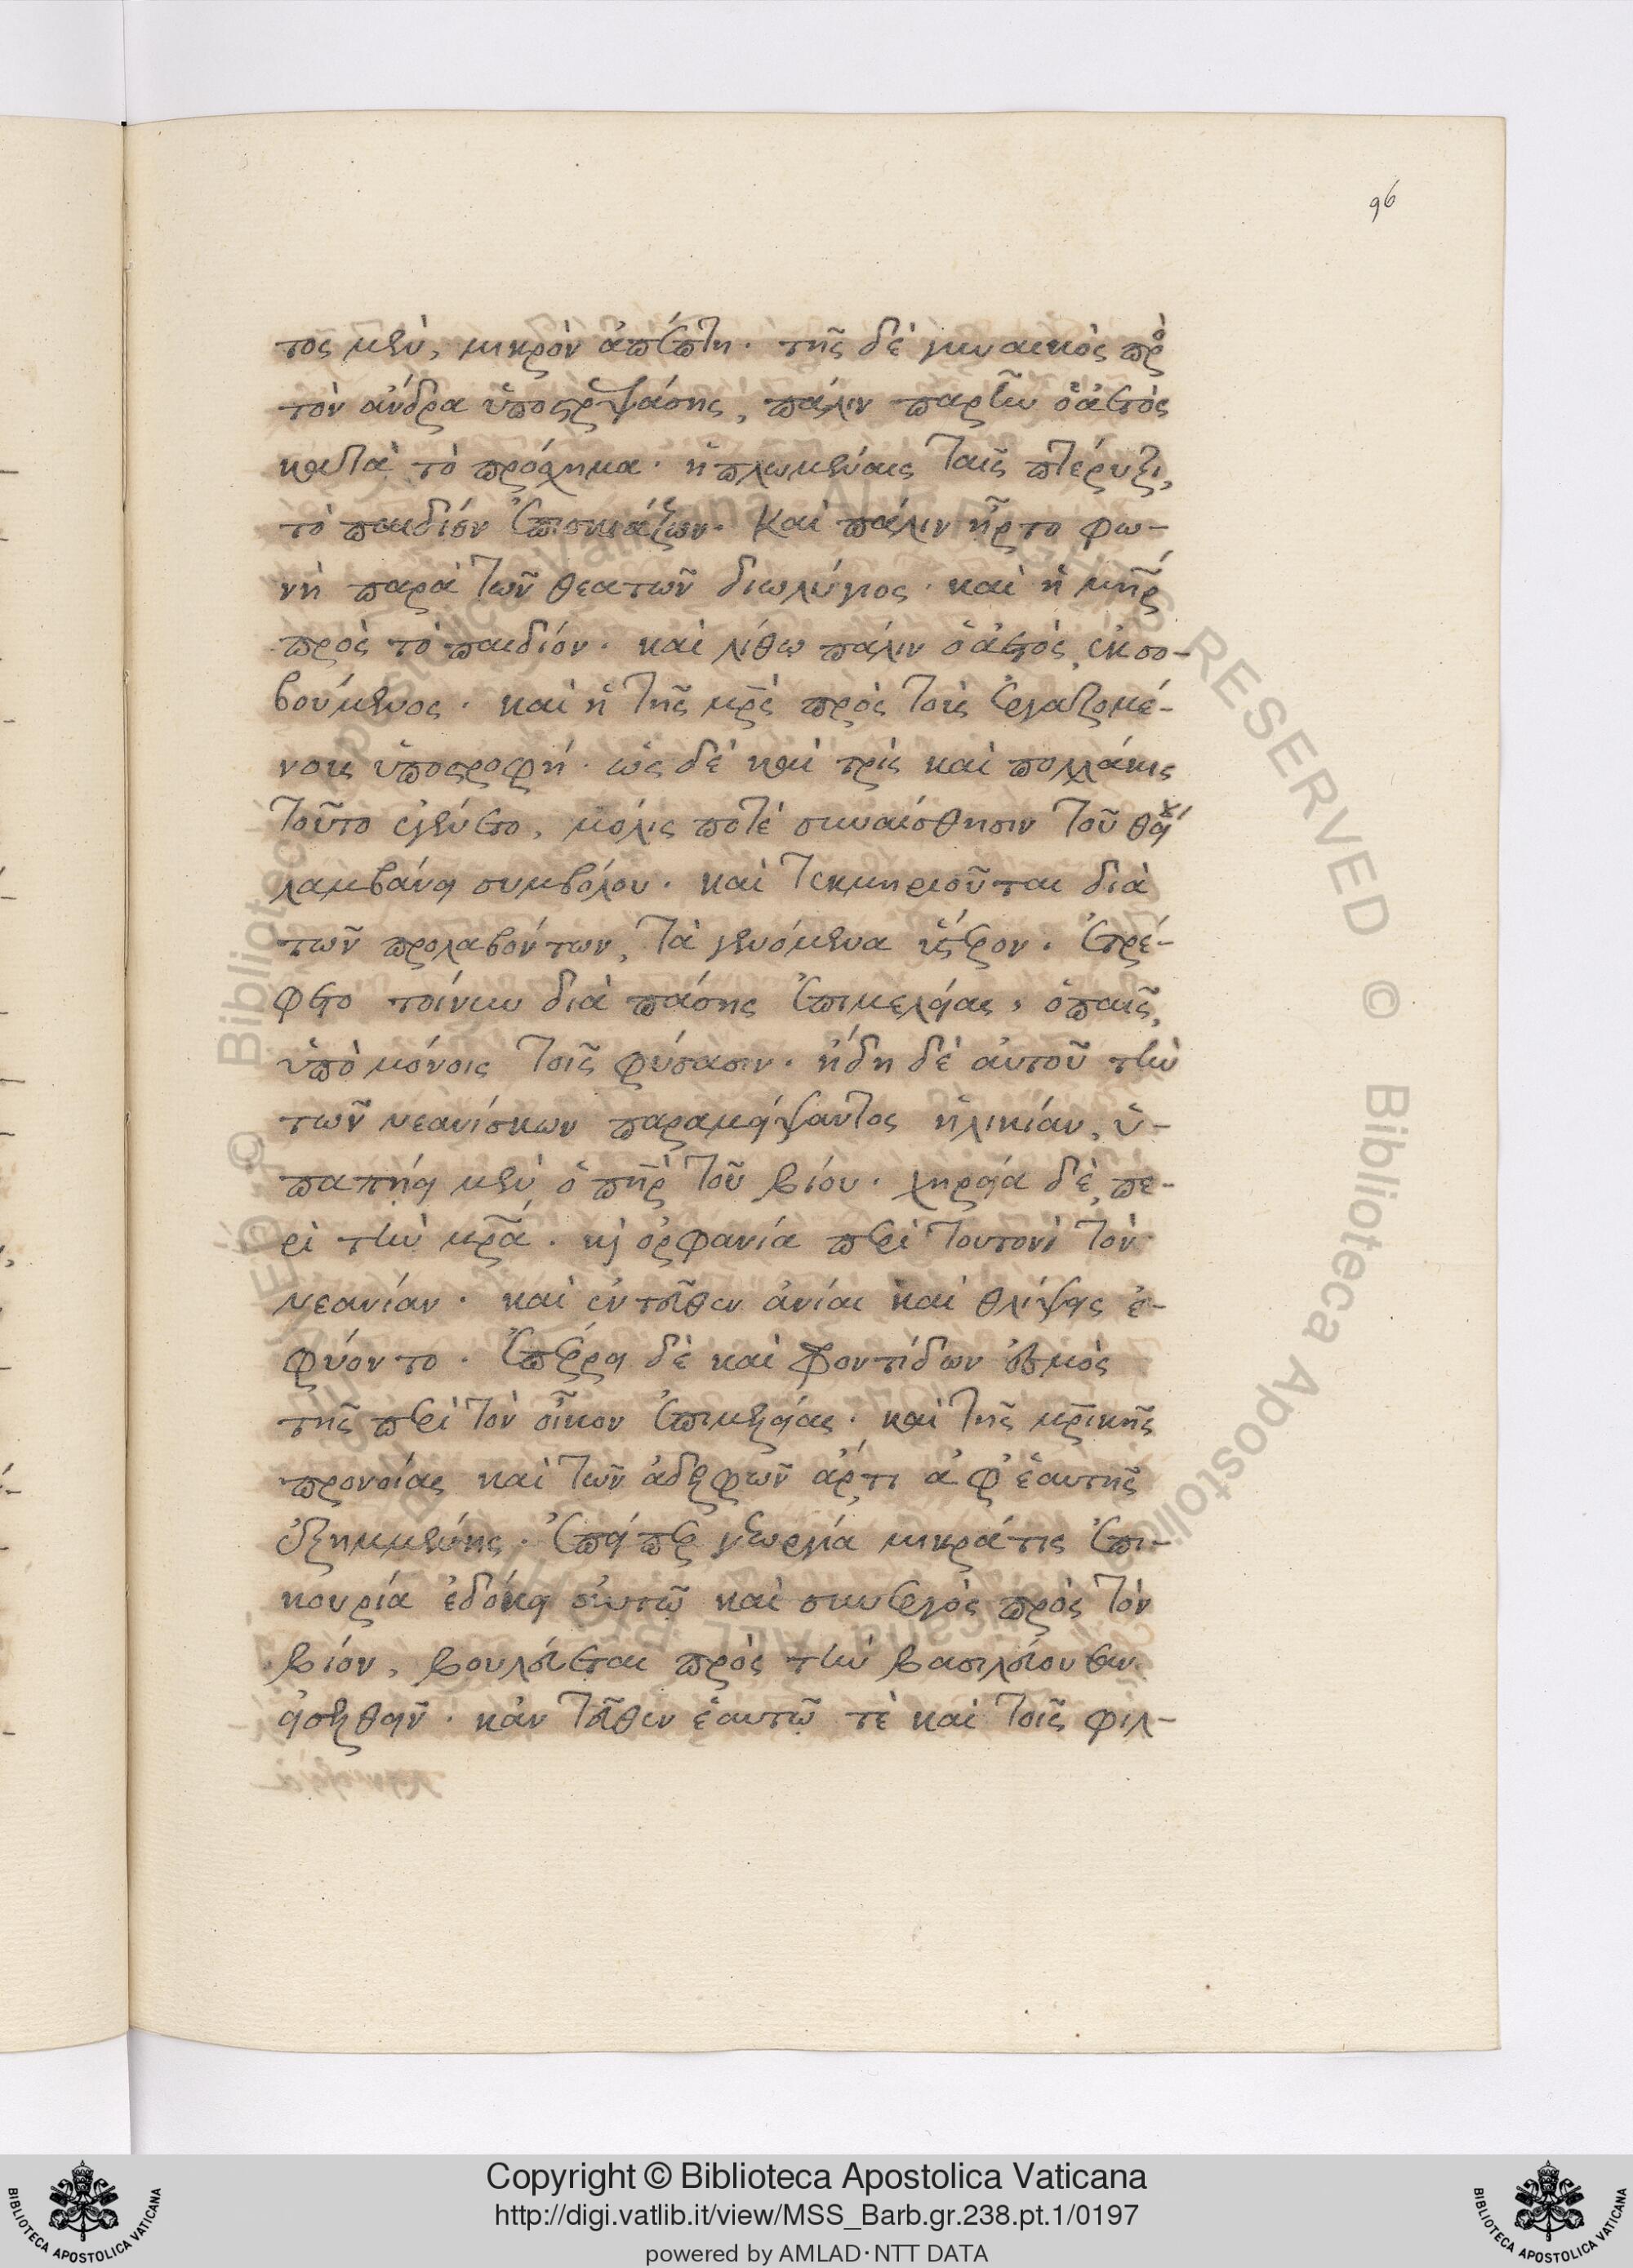 96
τος μὲν, μικρὸν ἀπέπτη. τῆς δὲ γυναικὸς πρὸς
τὸν ἄνδρα ὑποστρεψάσης, πάλιν παρῆν ὁ ἀετὸς
κατὰ τὸ πρόσχημα. ἡπλωμέναις ταῖς πτέρυξι,
τὸ παιδίον ἐπισκιάζων. καὶ πάλιν ἦρτο φω-
νὴ παρὰ τῶν θεατῶν διωλύγιος. καὶ ἡ μηρ
πρὸς τὸ παιδίον. καὶ λίθῳ πάλιν ὁ ἀετὸς, ἐκσο-
βούμενος. καὶ ἡ τῆς μρς πρὸς τοὺς ἐργαζομέ-
νους ὑποστροφή. ὡς δὲ καὶ τρὶς καὶ πολλάκις
τοῦτο ἐγένετο, μόλις ποτὲ συναίσθησιν τοῦ θείου
λαμβάνει συμβόλου. καὶ τεκμηριοῦται διὰ
τῶν προλαβόντων, τὰ γενόμενα ὕστερον. ἐτρέ-
φετο τοίνυν διὰ πάσης ἐπιμελείας, ὁ παῖς,
ὑπὸ μόνοις τοῖς φύσασιν. ἤδη δὲ αὐτοῦ τὴν
τῶν νεανίσκων παραμείψαντος ἡλικίαν, ὑ-
παπῄει μὲν ὁ πηρ τοῦ βίου. χηρεία δὲ, πε-
ρὶ τὴν μρα. καὶ ὀρφανία περὶ τουτονὶ τὸν
νεανίαν. καὶ ἐντεῦθεν ἀνίαι καὶ θλίψεις ἐ-
φύοντο. ἐπέρρει δὲ καὶ φροντίδων ἑσμὸς
τῆς περὶ τὸν οἶκον ἐπιμελείας. καὶ τῆς μρικῆς
προνοίας καὶ τῶν ἀδελφῶν ἄρτι ἀφ' ἑαυτῆς
ἐξημμένης. ἐπείπερ γεωργία μικρά τις ἐπι-
κουρία ἐδόκει αὐτῷ καὶ συνεργὸς πρὸς τὸν
βίον, βουλεύεται πρὸς τὴν βασιλεύουσαν
εἰσελθεῖν. κἀντεῦθεν ἑαυτῷ τὲ καὶ τοῖς φιλ-
Copyright © Biblioteca Apostolica Vaticana
http://digi.vatlib.it/view/MSS_Barb.gr.238.pt.1/0197
powered by AMLAD·NTT DATA